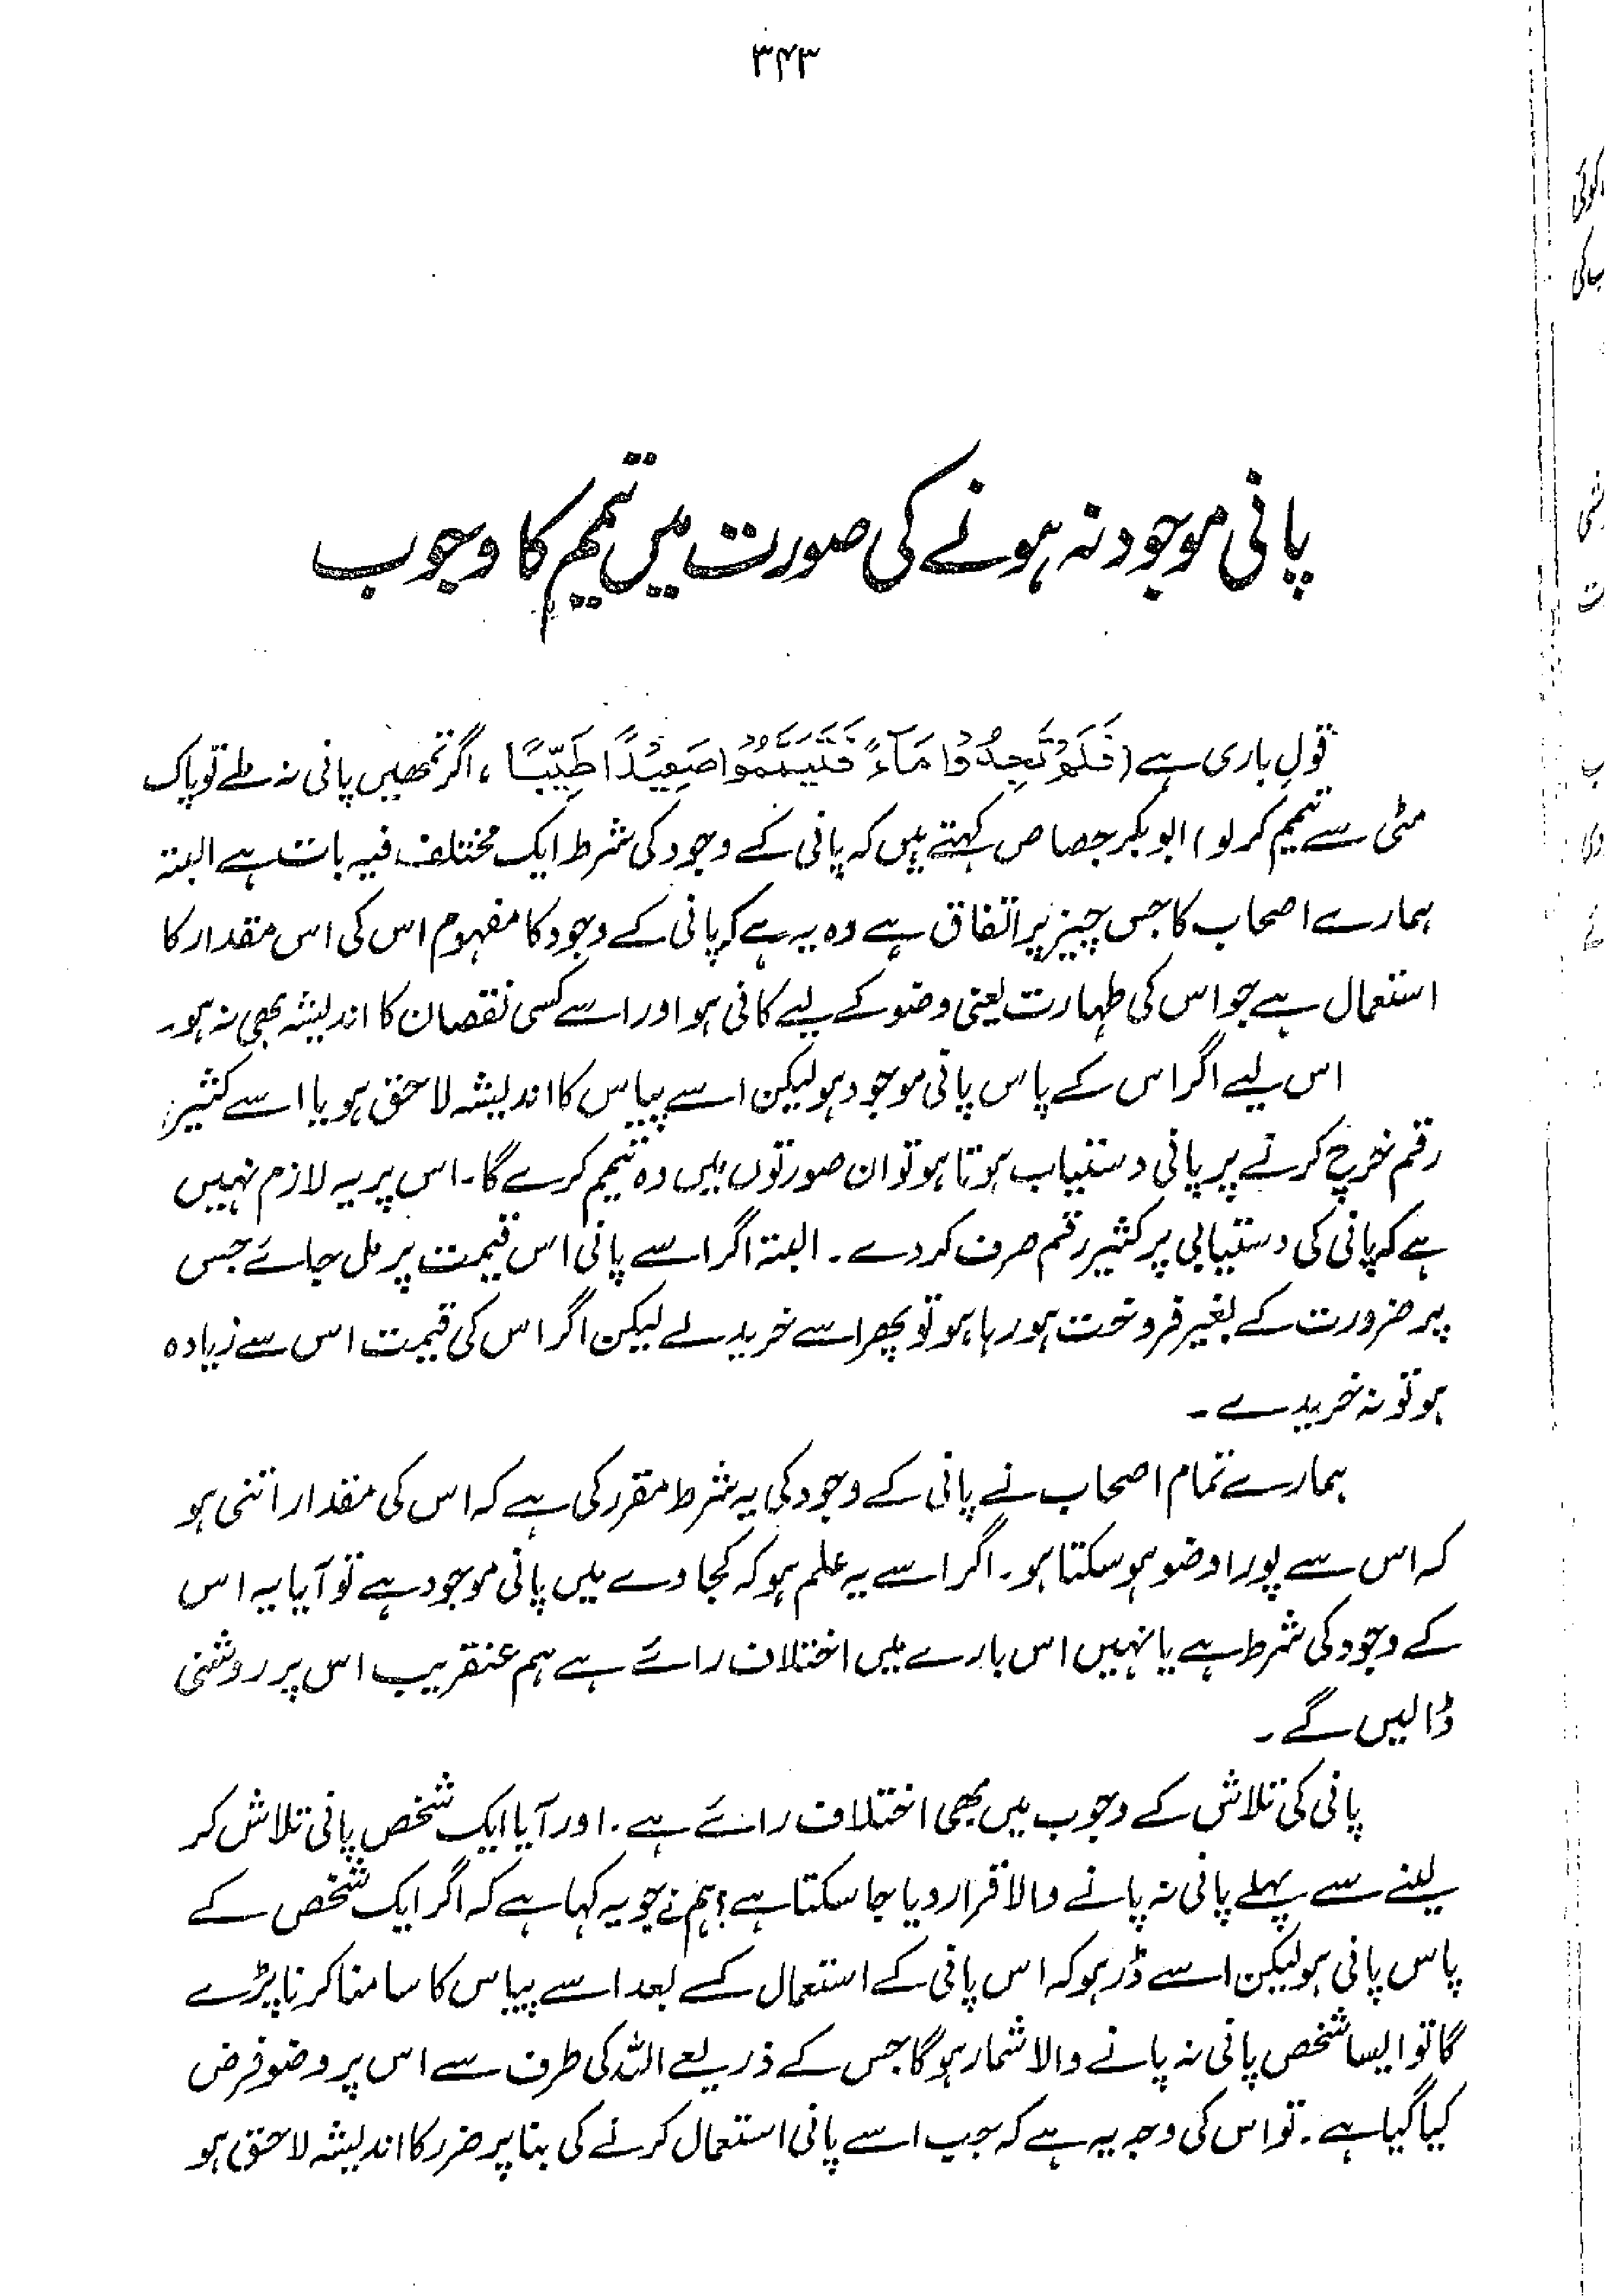 ۳۴۳
پانی موجود نہ ہونے کی صورت میں تیمم کا وجوب
قول باری ہے (فَلَمْ تَجِدُوْا مَآءً فَتَيَمَّمُوْا صَعِيْدًا طَيِّبًا، اگر تمھیں پانی نہ ملے تو پاک
مٹی سے تیمم کر لو) ابوبکر جصاص کہتے ہیں کہ پانی کے وجود کی شرط ایک مختلف فیہ بات ہے البتہ
ہمارے اصحاب کا جس چیز پر اتفاق ہے وہ یہ ہے کہ پانی کے وجود کا مفہوم اس کی اس مقدار کا
استعمال ہے جو اس کی طہارت یعنی وضو کے لیے کافی ہو اور اسے کسی نقصان کا اندیشہ بھی نہ ہو۔
اس لیے اگر اس کے پاس پانی موجود ہو لیکن اسے پیاس کا اندیشہ لاحق ہو یا اسے کثیر
رقم خرچ کرنے پر پانی دستیاب ہوتا ہو تو ان صورتوں میں وہ تیمم کرے گا۔ اس پر یہ لازم نہیں
ہے کہ پانی کی دستیابی پر کثیر رقم صرف کر دے۔ البتہ اگر اسے پانی اس قیمت پر مل جائے جس
پر ضرورت کے بغیر فروخت ہو رہا ہو تو پھر اسے خرید لے لیکن اگر اس کی قیمت اس سے زیادہ
ہو تو نہ خریدے۔
ہمارے تمام اصحاب نے پانی کے وجود کی یہ شرط مقرر کی ہے کہ اس کی مقدار اتنی ہو
کہ اس سے پورا وضو ہو سکتا ہو۔ اگر اسے یہ علم ہو کہ کجاوے میں پانی موجود ہے تو آیا یہ اس
کے وجود کی شرط ہے یا نہیں اس بارے میں اختلاف رائے ہے ہم عنقریب اس پر روشنی
ڈالیں گے۔
پانی کی تلاش کے وجوب میں بھی اختلاف رائے ہے۔ اور آیا ایک شخص پانی تلاش کر
لینے سے پہلے پانی نہ پانے والا قرار دیا جا سکتا ہے؟ ہم نے جو یہ کہا ہے کہ اگر ایک شخص کے
پاس پانی ہو لیکن اسے ڈر ہو کہ اس پانی کے استعمال کے بعد اسے پیاس کا سامنا کرنا پڑے
گا تو ایسا شخص پانی نہ پانے والا شمار ہو گا جس کے ذریعے اللہ کی طرف سے اس پر وضو فرض
کیا گیا ہے۔ تو اس کی وجہ یہ ہے کہ جب اسے پانی استعمال کرنے کی بنا پر ضرر کا اندیشہ لاحق ہو